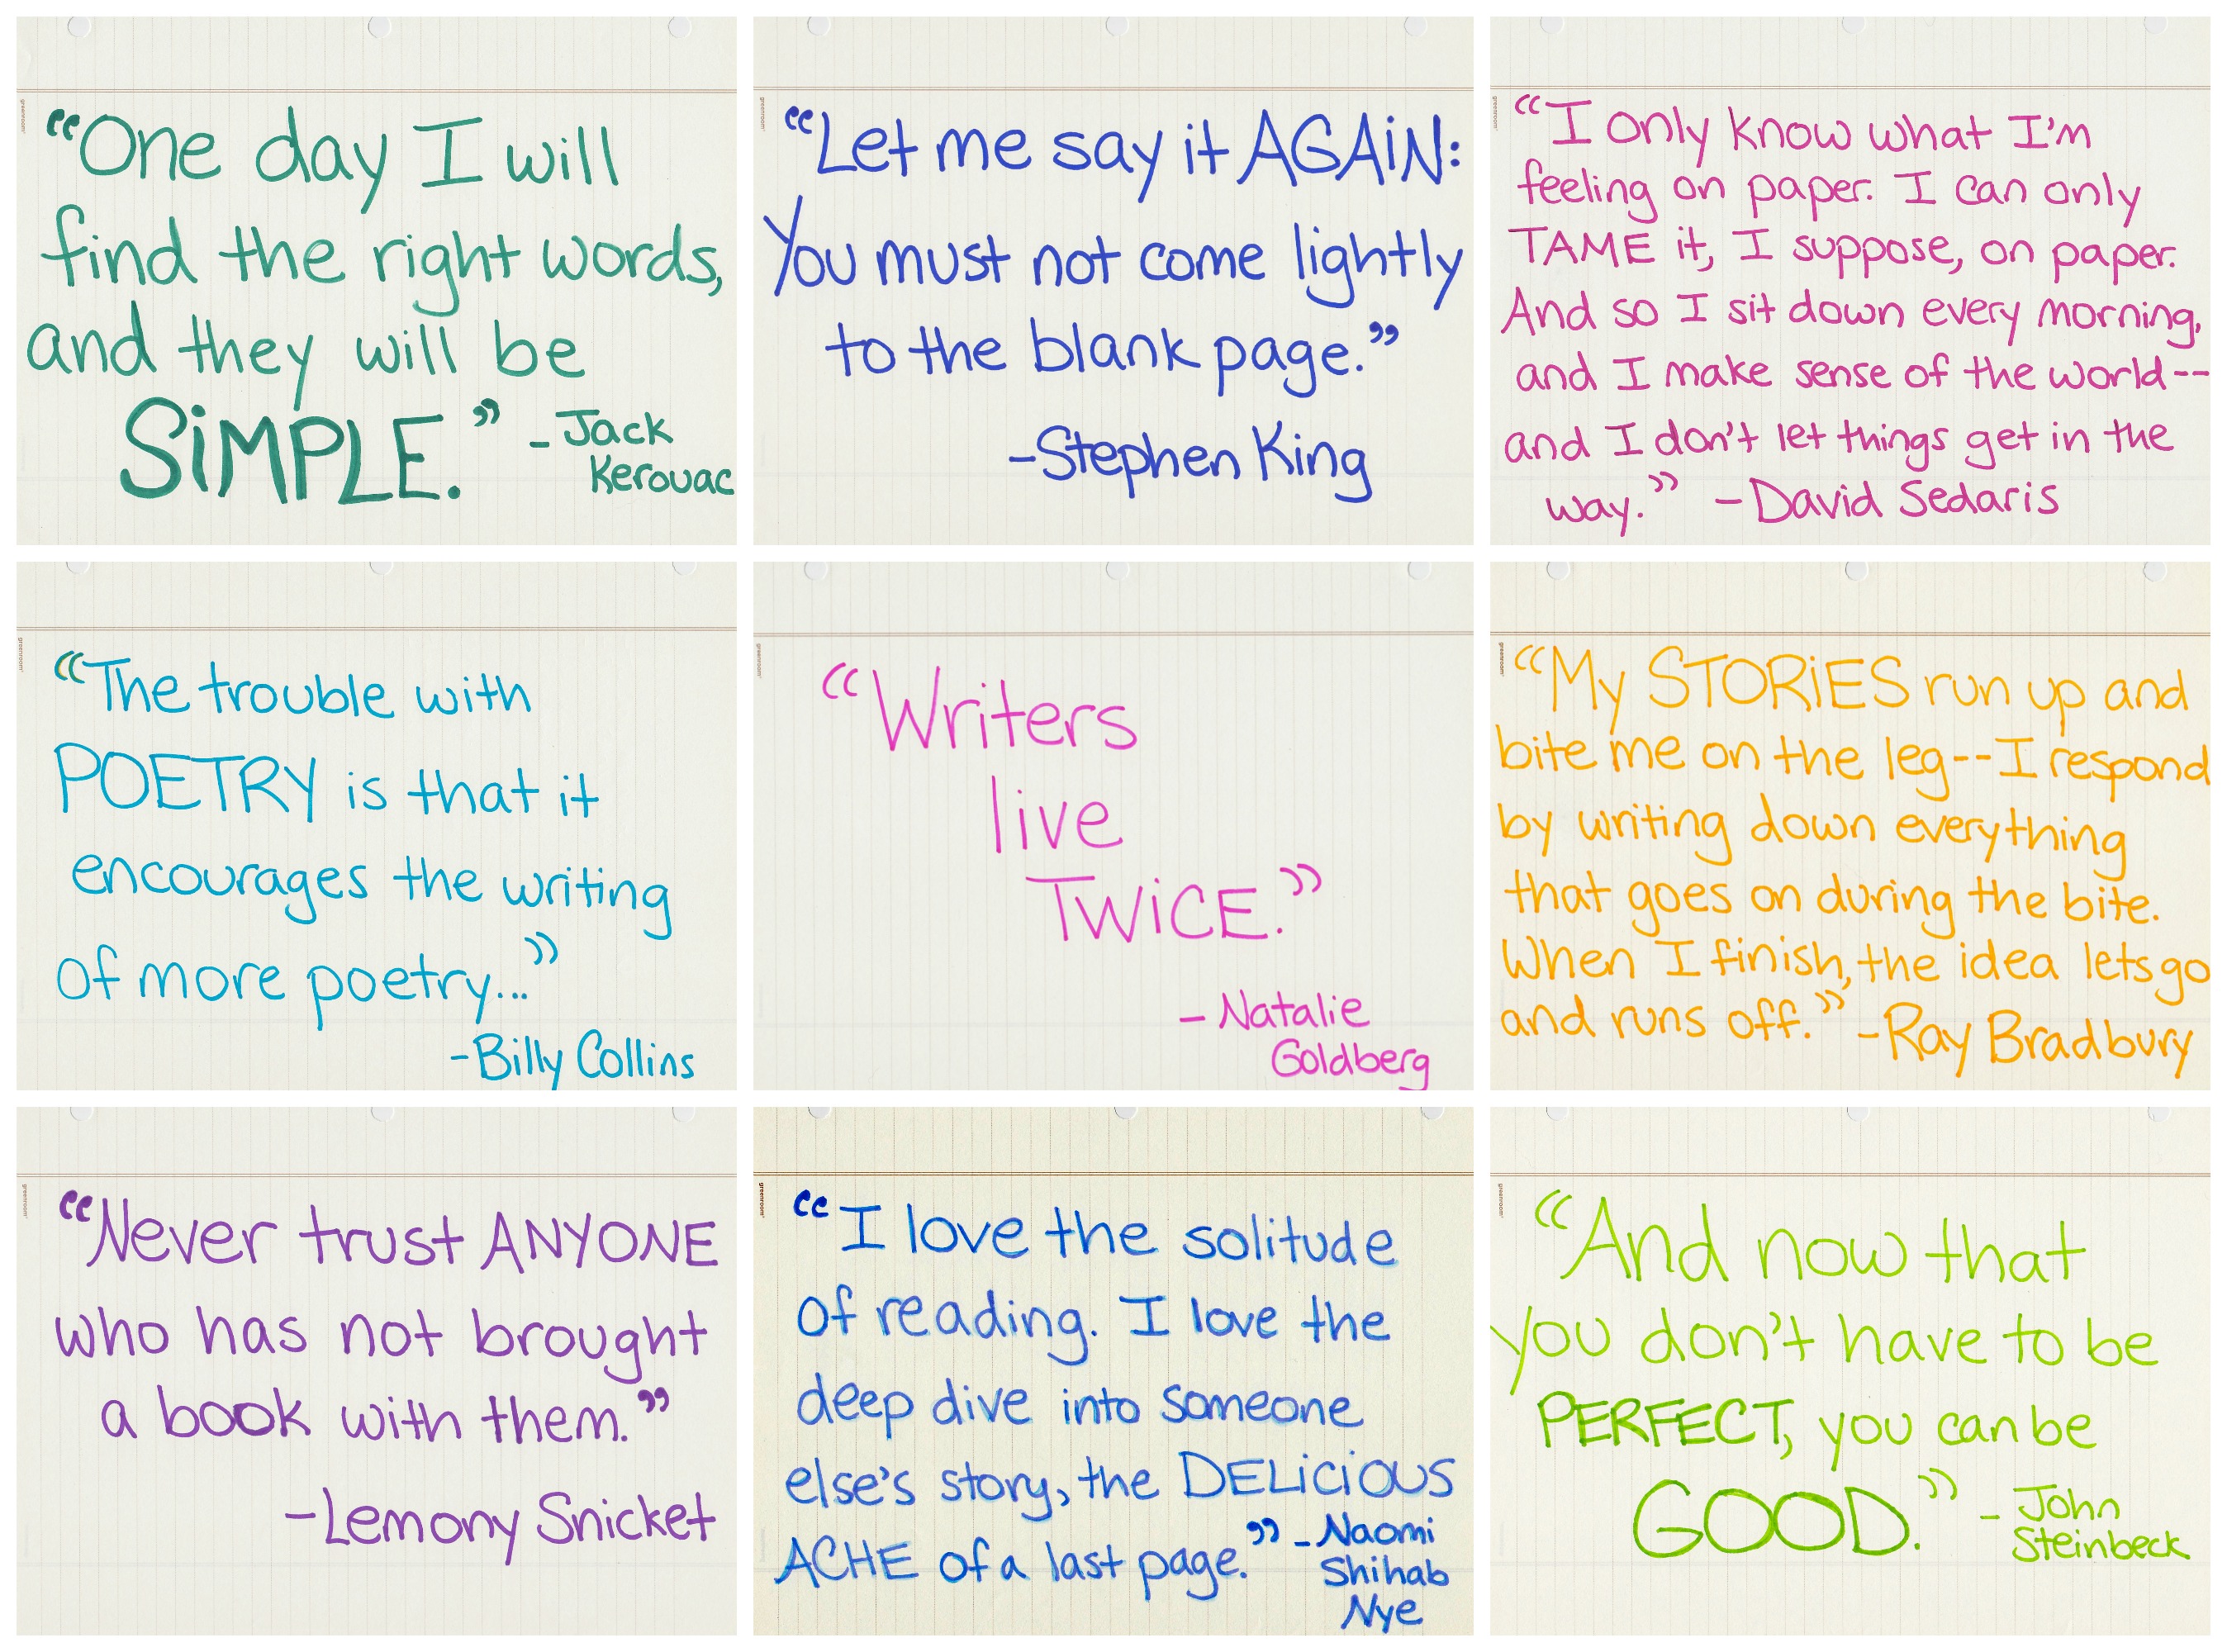 “One day I will
find the right words,
and they will be
SiMPLE.” -Jack
Kerouac
“Let me say it AGAiN:
You must not come lightly
to the blank page.”
-Stephen King
“I only know what I'm
feeling on paper. I can only
TAME it, I suppose, on paper.
And so I sit down every morning,
and I make sense of the world--
and I don't let things get in the
way.” -David Sedaris
“The trouble with
POETRY is that it
encourages the writing
of more poetry...”
-Billy Collins
“Writers
live
TWiCE.”
- Natalie
Goldberg
“My STORiES run up and
bite me on the leg--I respond
by writing down everything
that goes on during the bite.
When I finish, the idea lets go
and runs off.” -Ray Bradbury
“Never trust ANYONE
who has not brought
a book with them.”
-Lemony Snicket
“I love the solitude
of reading. I love the
deep dive into someone
else's story, the DELiCiOUS
ACHE of a last page.” -Naomi
Shihab
Nye
“And now that
you don't have to be
PERFECT, you can be
GOOD.” -John
Steinbeck
greenroom
greenroom
greenroom
greenroom
greenroom
greenroom
greenroom
greenroom
greenroom